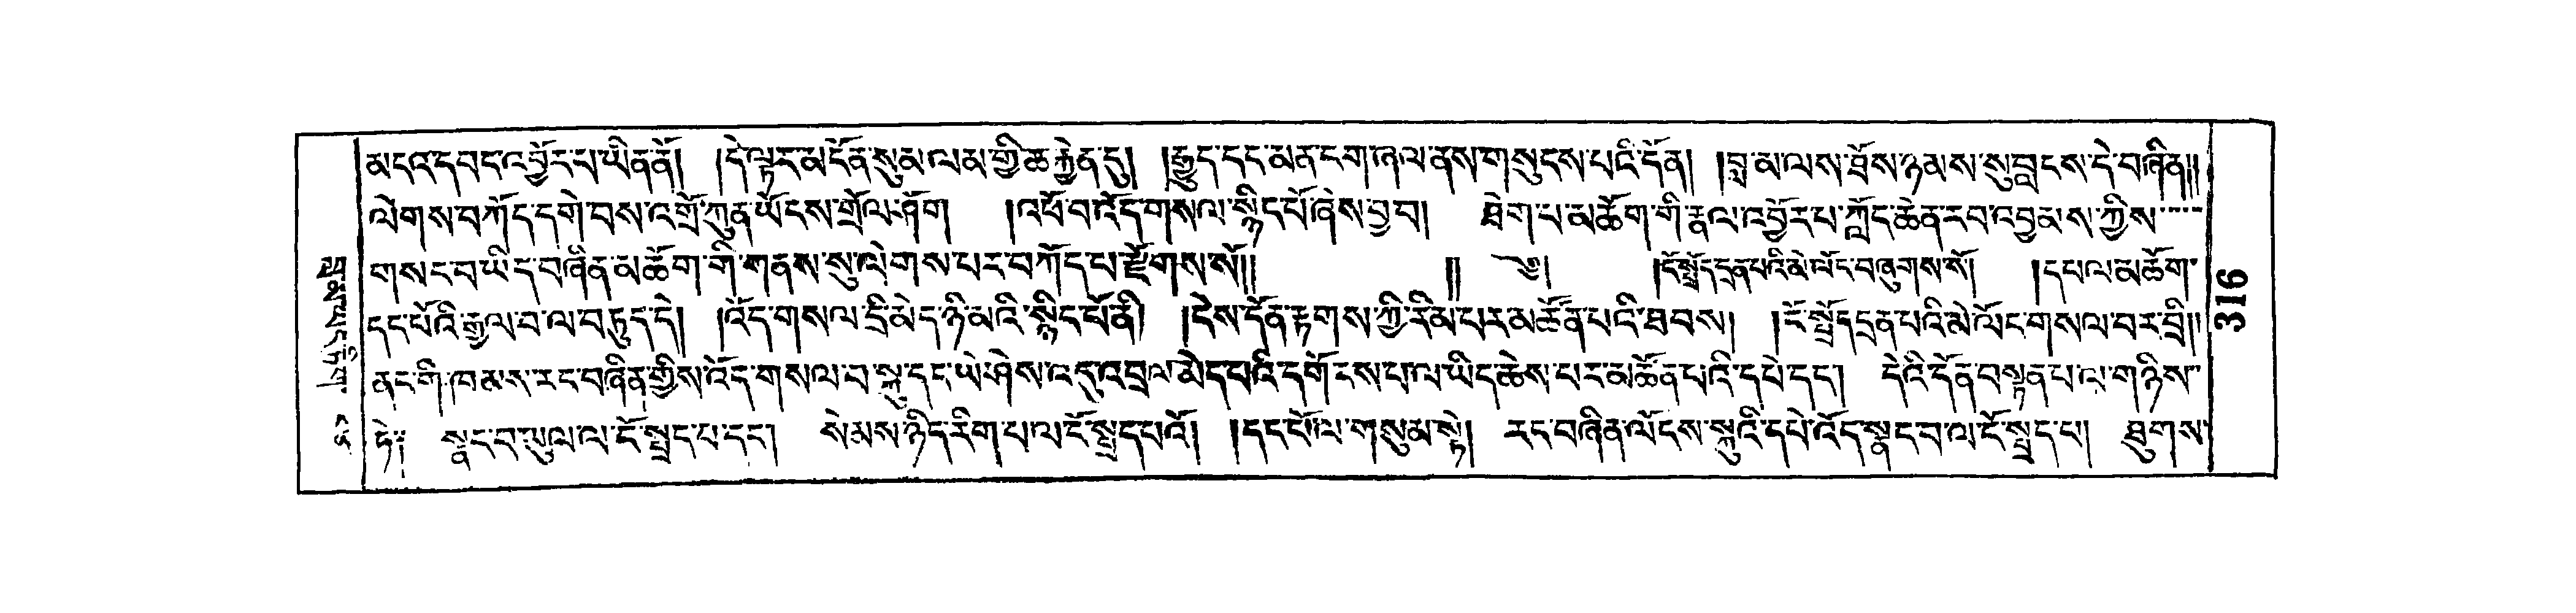 མངའ་དབང་འབྱོར་པ་ཡིན་ནོ། །དེ་ལྟར་མངོན་སུམ་ལམ་གྱི་ཆ་རྐྱེན་དུ། །རྒྱུད་དང་མན་ངག་ཞལ་ནས་གསུངས་པའི་དོན། །བླ་མ་ལས་ཐོས་ཉམས་སུ་བླངས་དེ་བཞིན།།
ལེགས་བཀོད་དགེ་བས་འགྲོ་ཀུན་ཡོངས་གྲོལ་ཤོག །འཕོ་བ་འོད་གསལ་སྙིང་པོ་ཞེས་བྱ་བ། ཐེག་པ་མཆོག་གི་རྣལ་འབྱོར་པ་ཀློང་ཆེན་རབ་འབྱམས་ཀྱིས
གསང་བ་ཡིད་བཞིན་མཆོག་གི་གནས་སུ་ལེགས་པར་བཀོད་པ་རྫོགས་སོ།། །། ༄། །ངོ་སྤྲོད་དྲན་པའི་མེ་ལོང་བཞུགས་སོ། །དཔལ་མཆོག་
དང་པོའི་རྒྱལ་བ་ལ་བཏུད་དེ། །འོད་གསལ་དྲི་མེད་ཉི་མའི་སྙིང་པོ་ནི། །ངེས་དོན་རྟགས་ཀྱི་རིམ་པར་མཚོན་པའི་ཐབས། །ངོ་སྤྲོད་དྲན་པའི་མེ་ལོང་གསལ་བར་བྲི།།
ནང་གི་ཁམས་རང་བཞིན་གྱིས་འོད་གསལ་བ་སྐུ་དང་ཡེ་ཤེས་འདུ་འབྲལ་མེད་པའི་དགོངས་པ་ལ་ཡིད་ཆེས་པར་མཚོན་པའི་དཔེ་དང་། དེའི་དོན་བསྟན་པ་ལ་གཉིས་
ཏེ། སྣང་བ་ཡུལ་ལ་ངོ་སྤྲད་པ་དང་། སེམས་ཉིད་རིག་པ་ལ་ངོ་སྤྲད་པའོ། །དང་པོ་ལ་གསུམ་སྟེ། རང་བཞིན་ལོངས་སྐུའི་དཔེ་འོད་སྣང་བ་ལ་ངོ་སྤྲད་པ། ཐུགས་
313